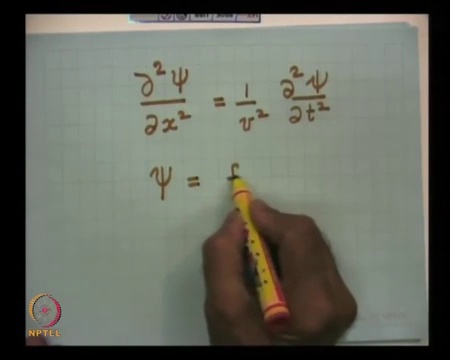 ∂²ψ/∂x² = 1/v² ∂²ψ/∂t²
ψ =
NPTEL